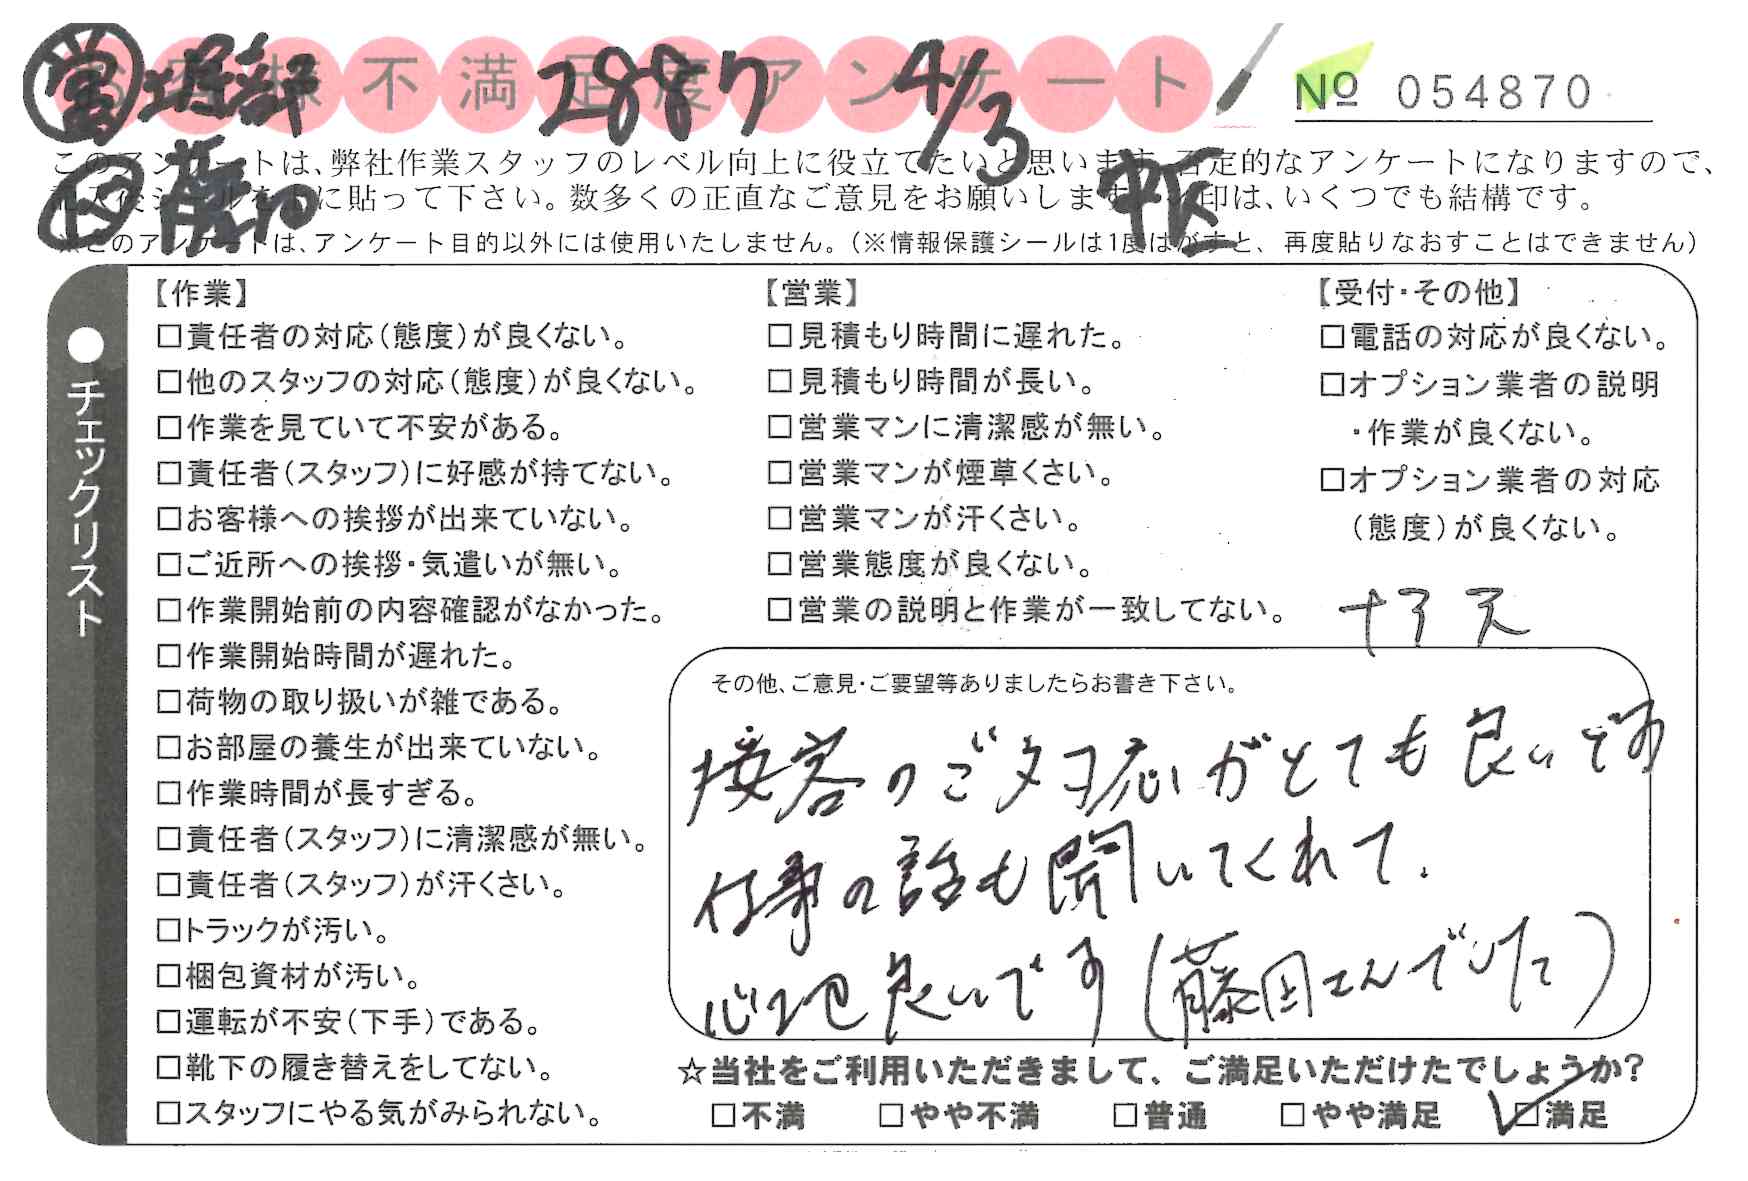 お客様不満足度アンケート
営 堀部 2887 4/3
№ 054870
このアンケートは、弊社作業スタッフのレベル向上に役立てたいと思います。否定的なアンケートになりますので、
記入後シールを上に貼って下さい。数多くの正直なご意見をお願いします。〆印は、いくつでも結構です。
※このアンケートは、アンケート目的以外には使用いたしません。（※情報保護シールは1度はがすと、再度貼りなおすことはできません）
中区
●チェックリスト
【作業】
□責任者の対応（態度）が良くない。
□他のスタッフの対応（態度）が良くない。
□作業を見ていて不安がある。
□責任者（スタッフ）に好感が持てない。
□お客様への挨拶が出来ていない。
□ご近所への挨拶・気遣いが無い。
□作業開始前の内容確認がなかった。
□作業開始時間が遅れた。
□荷物の取り扱いが雑である。
□お部屋の養生が出来ていない。
□作業時間が長すぎる。
□責任者（スタッフ）に清潔感が無い。
□責任者（スタッフ）が汗くさい。
□トラックが汚い。
□梱包資材が汚い。
□運転が不安（下手）である。
□靴下の履き替えをしてない。
□スタッフにやる気がみられない。
【営業】
□見積もり時間に遅れた。
□見積もり時間が長い。
□営業マンに清潔感が無い。
□営業マンが煙草くさい。
□営業マンが汗くさい。
□営業態度が良くない。
□営業の説明と作業が一致してない。
【受付・その他】
□電話の対応が良くない。
□オプション業者の説明
・作業が良くない。
□オプション業者の対応
（態度）が良くない。
その他、ご意見・ご要望等ありましたらお書き下さい。
接客のご対応がとても良いです
仕事の話も聞いてくれて.
心地良いです(藤田さんでした)
☆当社をご利用いただきまして、ご満足いただけたでしょうか?
□不満 □やや不満 □普通 □やや満足 ☑満足